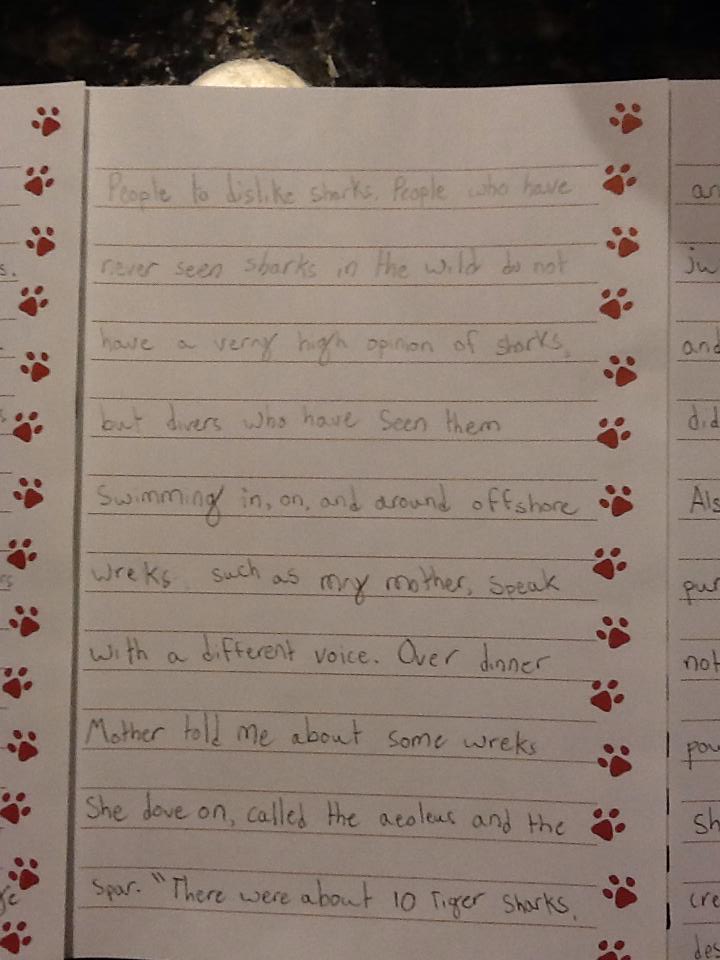 People to dislike sharks. People who have
never seen sharks in the wild do not
have a verny high opinion of sharks,
but divers who have seen them
Swimming in, on, and around offshore
wreks, such as my mother, speak
with a different voice. Over dinner
Mother told me about some wreks
She dove on, called the aeoleus and the
Spar. "There were about 10 Tiger sharks,
s.
an
jw
and
did
Als
pur
not
pow
Sh
cre
des